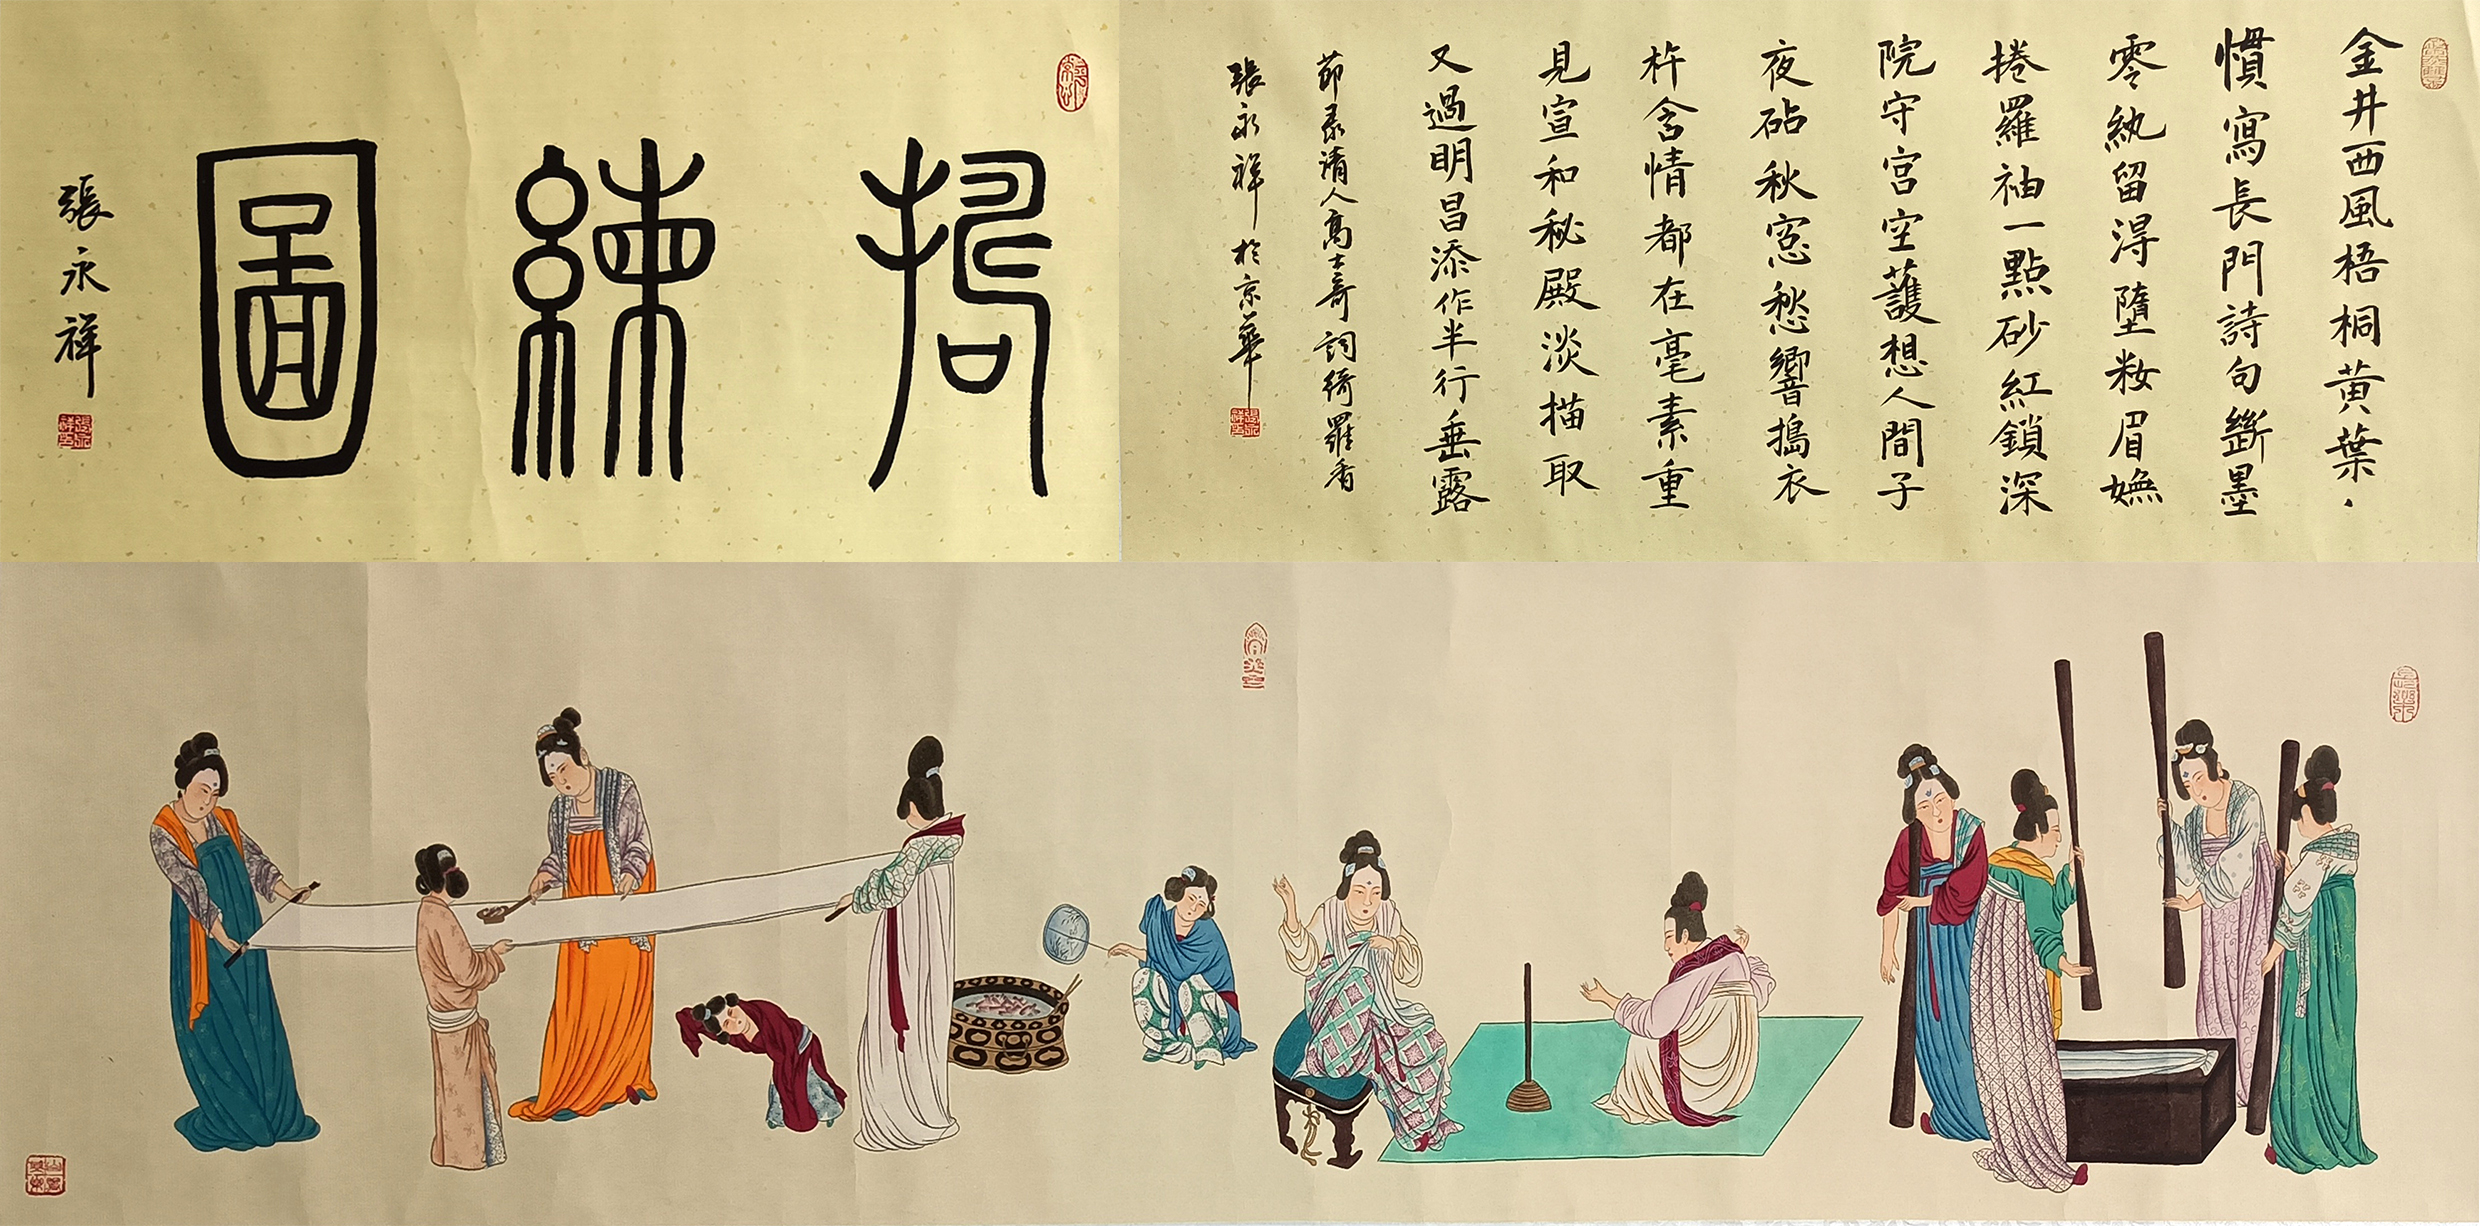 搗練圖
張永祥
金井西風梧桐黄葉、
慣寫長門詩句斷墨
零紈留得墮籹眉嫵
捲羅袖一點砂紅鎖深
院守宮空護想人間子
夜砧秋窓愁響搗衣
杵含情都在毫素重
見宣和秘殿淡描取
又過明昌添作半行垂露
節录清人高士奇詞綺羅香
張永祥於京華